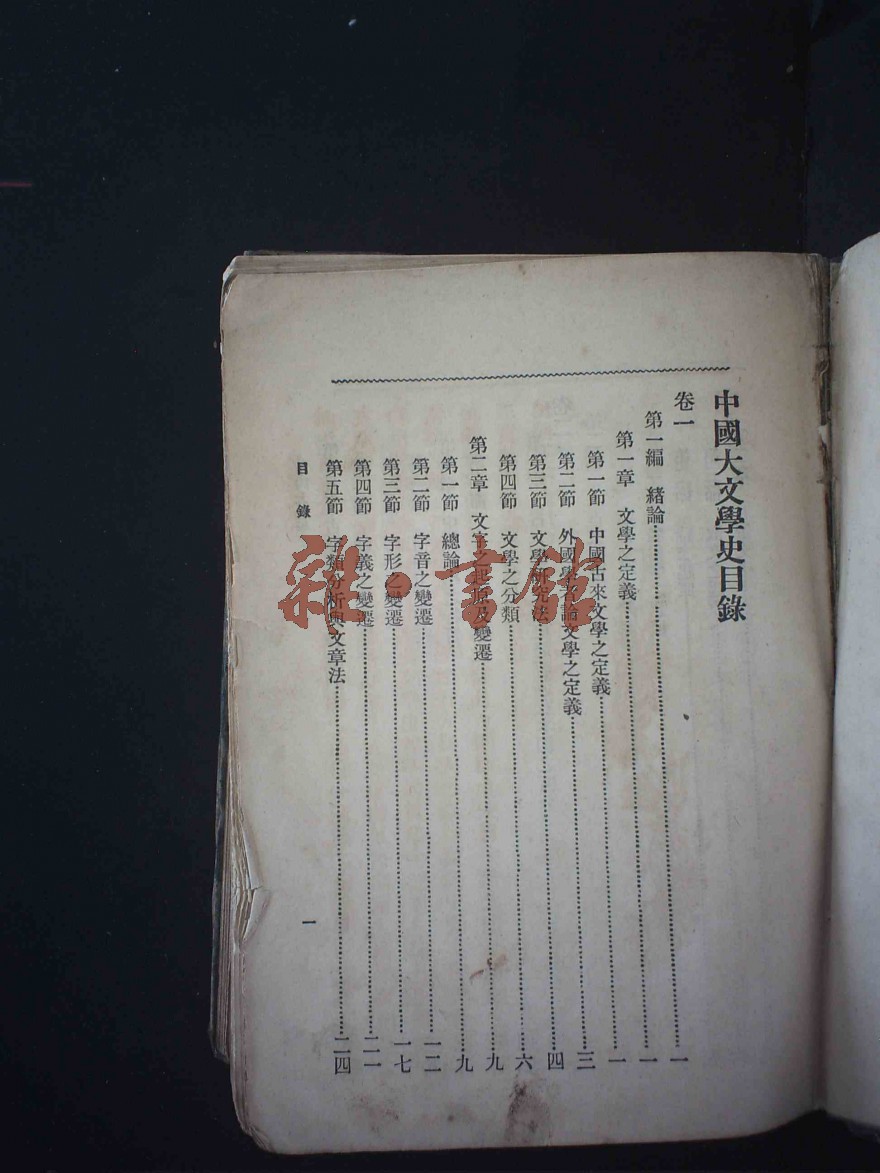 中國大文學史目錄
卷一
第一編 緒論……一
第一章 文學之定義……一
第一節 中國古來文學之定義……三
第二節 外國學者論文學之定義……四
第三節 文學研究法……六
第四節 文學之分類……九
第二章 文字之起原及變遷……九
第一節 總論……九
第二節 字音之變遷……一二
第三節 字形之變遷……一七
第四節 字義之變遷……二一
第五節 字類分析與文章法……二四
目錄
一
雜·書館